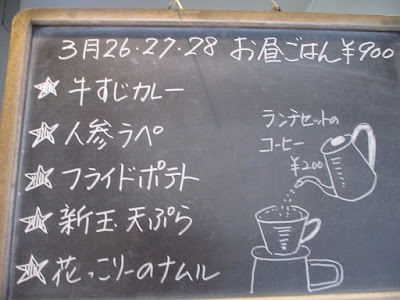 3月26・27・28 お昼ごはん¥900
★牛すじカレー
★人参ラペ
★フライドポテト
★新玉天ぷら
★花っこりーのナムル
ランチセットの
コーヒー
¥200